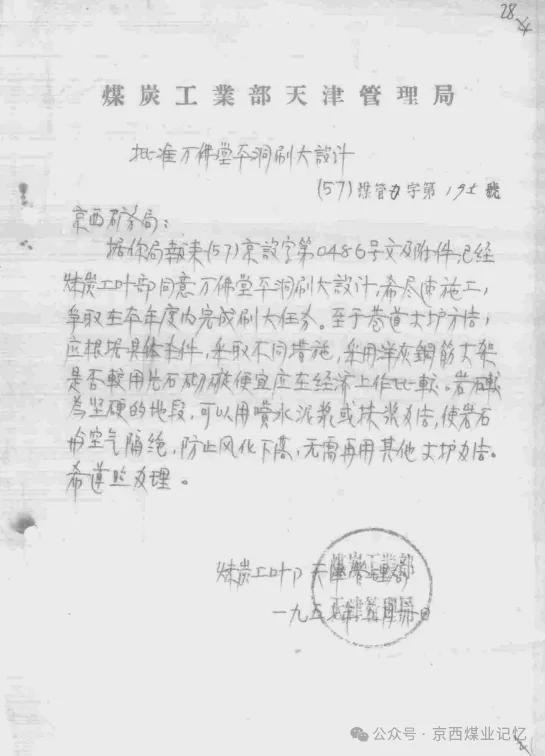 28
煤炭工業部天津管理局
批准万佛堂平洞刷大設计
(57)煤管 字第19 號
京西矿务局:
据你局報来(57)京設字第0486号文及附件,已经
煤炭工业部同意万佛堂平洞刷大設计,希尽速施工,
争取在本年度内完成刷大任务。至于巷道支护方法,
应根据具体条件,采取不同措施,采用洋灰鋼筋支架
是否較用片石砌碹便宜应在经济上作比較。岩石較
为坚硬的地段,可以用喷水泥浆或抹浆办法,使岩石
与空气隔绝,防止风化下落,无需再用其他支护办法。
希遵照办理。
煤炭工业部天津管理局
一九五
煤炭工業部
天津管理局
公众号·京西煤业记忆